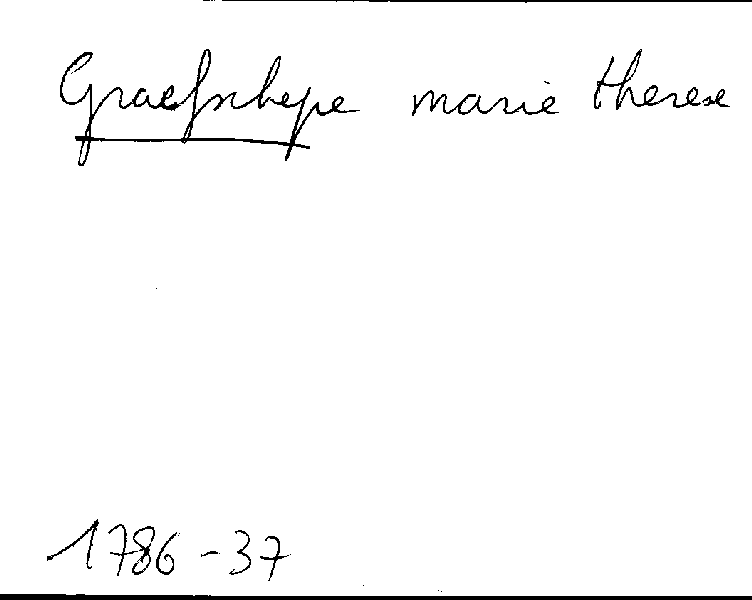 Graefschepe marie therese
1786-37